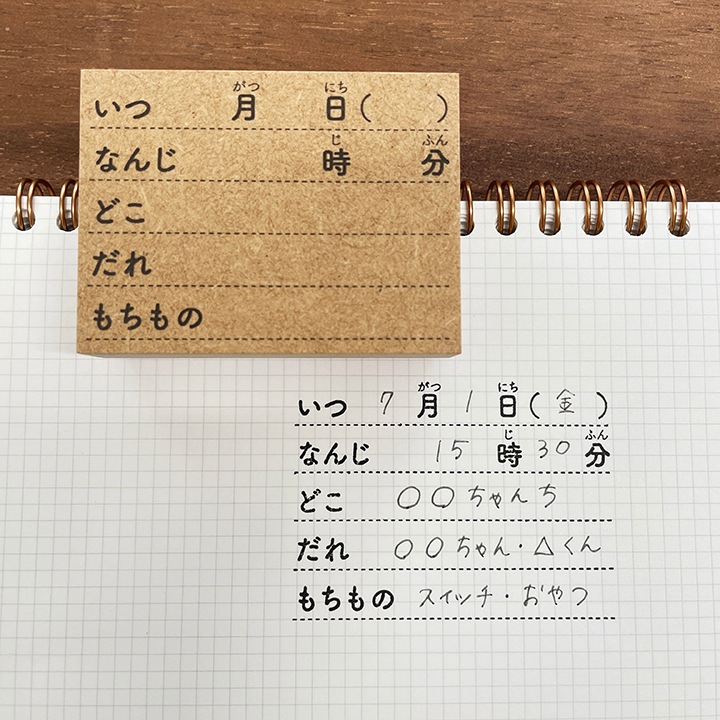 いつ 月 日( )
なんじ 時 分
どこ
だれ
もちもの
いつ 7 月 1 日( 金 )
なんじ 15 時 30 分
どこ ○○ちゃんち
だれ ○○ちゃん・△くん
もちもの スイッチ・おやつ